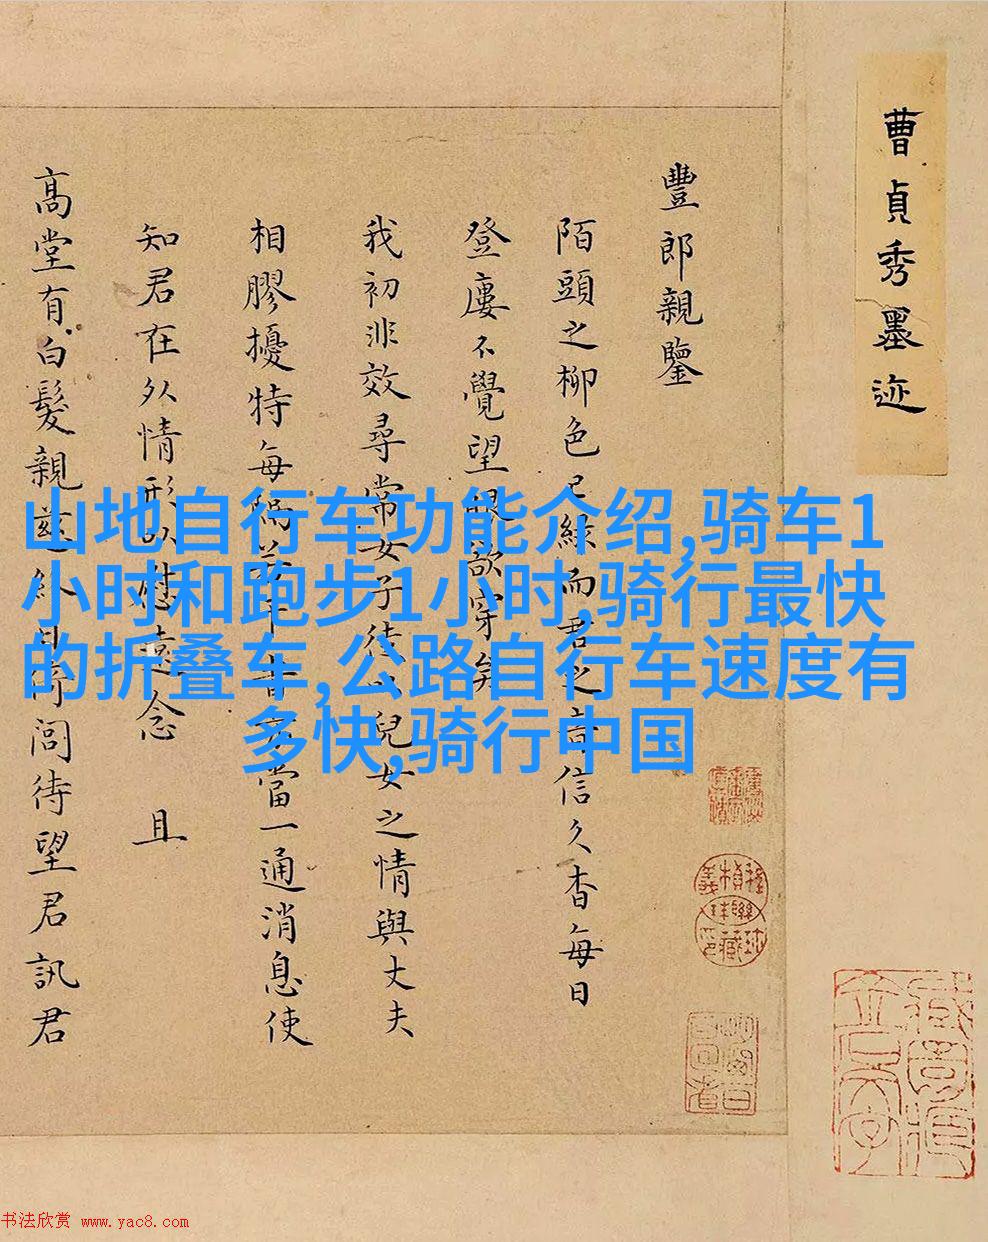 曹貞秀墨迹
豐郎親鑒
陌頭之柳色已綠而君之音信久杳每日
登廔不覺望眼欲穿矣
我初非效尋常女子徒以兒女之情與丈夫
相膠擾特每隔當一通消息使
知君在外情形以慰遠念 且
高堂有白髮親日倚閭待望君訊君
山地自行车功能介绍,骑车1
小时和跑步1小时,骑行最快
的折叠车,公路自行车速度有
多快,骑行中国
书法欣赏 www.yac8.com